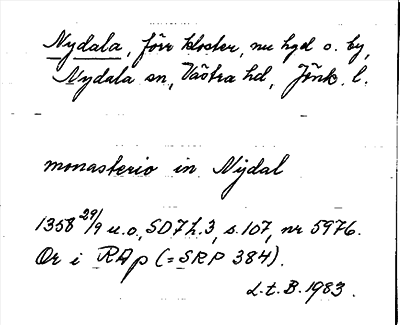 Nydala, förr kloster, nu hgd o. by,
Nydala sn, Västra hd, Jönk. l.
monasterio in Nijdal
1358 29/9 u.o., SD 7 h.3, s.107, nr 5976.
Or i RAp (= SRP 384).
L.t.B. 1983.